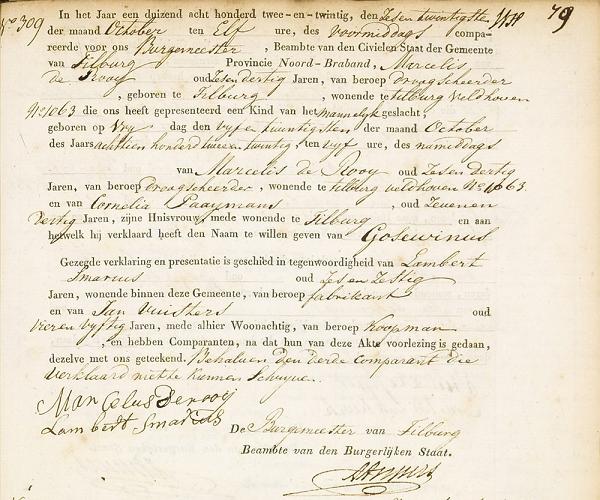 N° 309
79
In het Jaar een duizend acht honderd twee-en-twintig, den Zes en twintigste
der maand October ten Elf ure, des voormiddags compa-
reerde voor ons Burgemeester, Beambte van den Civielen Staat der Gemeente
van Tilburg Provincie Noord-Braband, Marcelis
de Rooy oud Zes en dertig Jaren, van beroep droogscheerder
, geboren te Tilburg, wonende te tilburg veldhoven
N° 1063 die ons heeft gepresenteerd een Kind van het mannelyk geslacht,
geboren op Vry dag den vyf en twintigsten der maand October
des Jaars achttien honderd twee en twintig ten vyf ure, des namiddags
van Marcelis de Rooy oud Zes en dertig
Jaren, van beroep droogscheerder, wonende te tilburg veldhoven N° 1063
en van Cornelia Paaymans, oud Zeven en
dertig Jaren, zijne Huisvrouw, mede wonende te Tilburg en aan
hetwelk hij verklaard heeft den Naam te willen geven van Gosewinus
Gezegde verklaring en presentatie is geschied in tegenwoordigheid van Lambert
Smarius oud Zes en Zestig
Jaren, wonende binnen deze Gemeente, van beroep fabrikant
en van Jan oud
vier en vyftig Jaren, mede alhier Woonachtig, van beroep Koopman
, en hebben Comparanten, na dat hun van deze Akte voorlezing is gedaan,
dezelve met ons geteekend. Behalven den derde Comparant die
verklaard niet te kunnen Schryven.
Marcelus derooy
Lambert Smarius
De Burgemeester van Tilburg
Beambte van den Burgerlijken Staat.